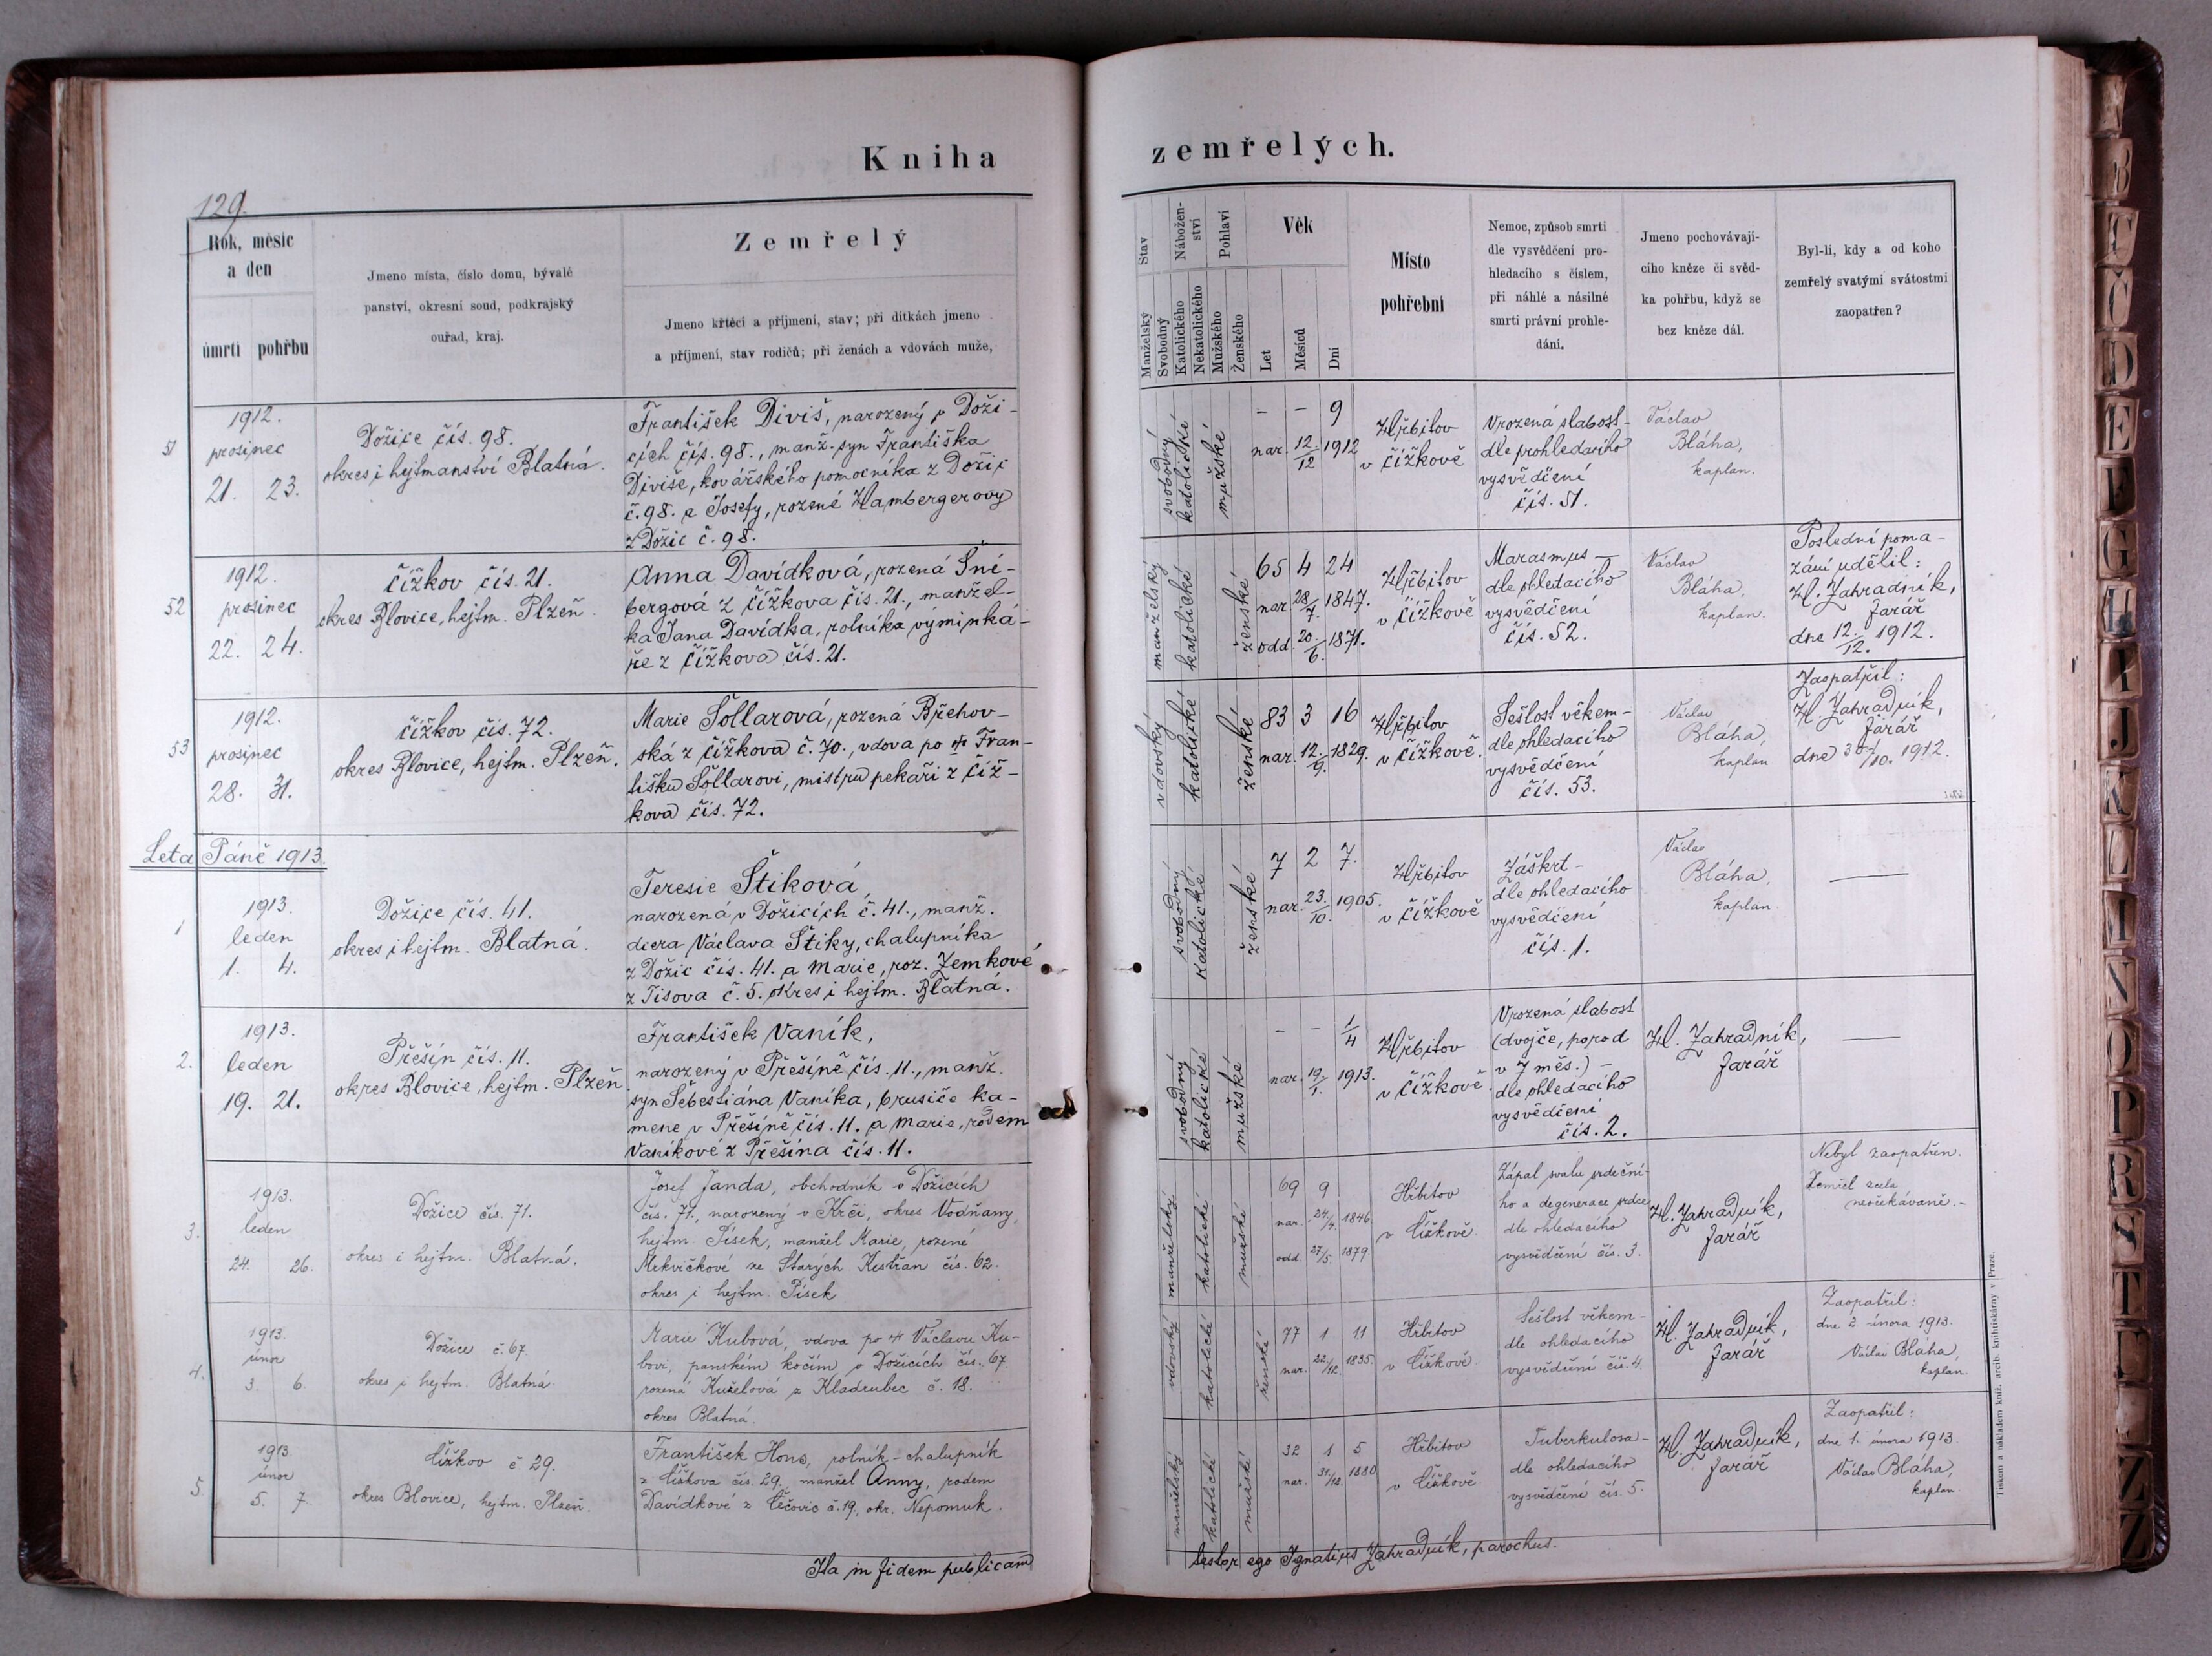 Kniha
zemřelých.
129.
Rok, měsíc
a den
úmrtí pohřbu
Jmeno místa, číslo domu, bývalé
panství, okresní soud, podkrajský
ouřad, kraj.
Zemřelý
Jmeno křtěcí a příjmení, stav; při dítkách jmeno
a příjmení, stav rodičů; při ženách a vdovách muže,
Stav
Manželský
Svobodný
Nábožen-
ství
Katolického
Nekatolického
Pohlaví
Mužského
Ženského
Věk
Let
Měsíců
Dní
Místo
pohřební
Nemoc, způsob smrti
dle vysvědčení pro-
hledacího s číslem,
při náhlé a násilné
smrti právní prohle-
dání.
Jmeno pochovávají-
cího kněze či svěd-
ka pohřbu, když se
bez kněze dál.
Byl-li, kdy a od koho
zemřelý svatými svátostmi
zaopatřen?
51
1912.
prosinec
21. 23.
Dožice čís. 98.
okres i hejtmanství Blatná.
František Diviš, narozený v Doži-
cích čís. 98., manž. syn Františka
Diviše, kovářského pomocníka z Dožic
č. 98. a Josefy, rozené Hambergerovy
z Dožic č. 98.
svobodný
katolické
mužské
- - 9
nar. 12./12 1912
Hřbitov
v Čížkově
Vrozená slabost-
dle prohledacího
vysvědčení
čís. 51.
Václav
Bláha,
kaplan.
52
1912.
prosinec
22. 24.
Čížkov čís. 21.
okres Blovice, hejtm. Plzeň.
Anna Davídková, rozená Šni-
bergová z Čížkova čís. 21., manžel-
ka Jana Davídka, rolníka výminká-
ře z Čížkova čís. 21.
manželský
katolické
ženské
65 4 24
nar. 28/7. 1847.
odd. 20./6. 1871.
Hřbitov
v Čížkově
Marasmus -
dle ohledacího
vysvědčení
čís. 52.
Václav
Bláha,
kaplan.
Poslední poma-
zání udělil:
H. Zahradník,
farář
dne 12./12. 1912.
53
1912.
prosinec
28. 31.
Čížkov čís. 72.
okres Blovice, hejtm. Plzeň.
Marie Šollarová, rozená Břehov-
ská z Čížkova č. 70., vdova po † Fran-
tišku Šollarovi, mistru pekaři z Číž-
kova čís. 72.
vdovský
katolické
ženské
83 3 16
nar. 12./9. 1829.
Hřbitov
v Čížkově.
Sešlost věkem-
dle ohledacího
vysvědčení
čís. 53.
Václav
Bláha,
kaplan
Zaopatřil:
H. Zahradník,
farář
dne 30./10. 1912.
Leta Páně 1913.
1
1913.
leden
1. 4.
Dožice čís. 41.
okres i hejtm. Blatná.
Teresie Štiková,
narozená v Dožicích č. 41., manž.
dcera Václava Štiky, chalupníka
z Dožic čís. 41. a Marie, roz. Zemkové
z Tisova č. 5. okres i hejtm. Blatná.
svobodný
katolické
ženské
7 2 7.
nar. 23./10. 1905.
Hřbitov
v Čížkově
Záškrt-
dle ohledacího
vysvědčení
čís. 1.
Václav
Bláha,
kaplan.
—
2.
1913.
leden
19. 21.
Přešín čís. 11.
okres Blovice, hejtm. Plzeň.
František Vaník,
narozený v Přešíně čís. 11., manž.
syn Šebestiána Vaníka, brusiče ka-
mene v Přešíně čís. 11. a Marie, rodem
Vaníkové z Přešína čís. 11.
svobodný
katolické
mužské
- - 1/4
nar. 19./1. 1913.
Hřbitov
v Čížkově.
Vrozená slabost
(dvojče, porod
v 7 měs.) -
dle ohledacího
vysvědčení
čís. 2.
H. Zahradník,
farář
—
3.
1913.
leden
24. 26.
Dožice čís. 71.
okres i hejtm. Blatná.
Josef Janda, obchodník v Dožicích
čís. 71., narozený v Krči, okres Vodňany,
hejtm. Písek, manžel Marie, rozené
Mrkvičkové ze Starých Kestřan čís. 62.
okres i hejtm. Písek
manželský
katolické
mužské
69 9
nar. 24/4. 1846
odd. 27/5. 1879.
Hřbitov
v Čížkově.
Zápal svalu srdeční-
ho a degenerace srdce,
dle ohledacího
vysvědčení čís. 3.
H. Zahradník,
farář
Nebyl zaopatřen.
Zemřel zcela
neočekávaně. -
4.
1913.
únor
3. 6.
Dožice č. 67.
okres i hejtm. Blatná.
Marie Kubová, vdova po † Václavu Ku-
bovi, panském kočím v Dožicích čís. 67.
rozená Kuželová z Kladrubec č. 18.
okres Blatná.
vdovský
katolické
ženské
77 1 11
nar. 22/12. 1835.
Hřbitov
v Čížkově.
Sešlost věkem-
dle ohledacího
vysvědčení čís. 4.
H. Zahradník,
farář
Zaopatřil:
dne 2 února 1913.
Václav Bláha,
kaplan.
5.
1913
únor
5. 7.
Čížkov č 29.
okres Blovice, hejtm. Plzeň.
František Hons, rolník-chalupník
z Čížkova čís. 29, manžel Anny, rodem
Davídkové z Čečovic č. 19, okr. Nepomuk.
manželský
katolické
mužské
32 1 5
nar. 31/12. 1880.
Hřbitov
v Čížkově.
Tuberkulosa-
dle ohledacího
vysvědčení čís. 5.
H. Zahradník,
farář
Zaopatřil:
dne 1. února 1913.
Václav Bláha,
kaplan.
Ita in fidem publicam
testor ego Ignatius Zahradník, parochus.
Tiskem a nákladem kníž. arcib. knihtiskárny v Praze.
B
C
Č
D
E
F
G
H
I
J
K
L
M
N
O
P
R
S
T
Z
Ž